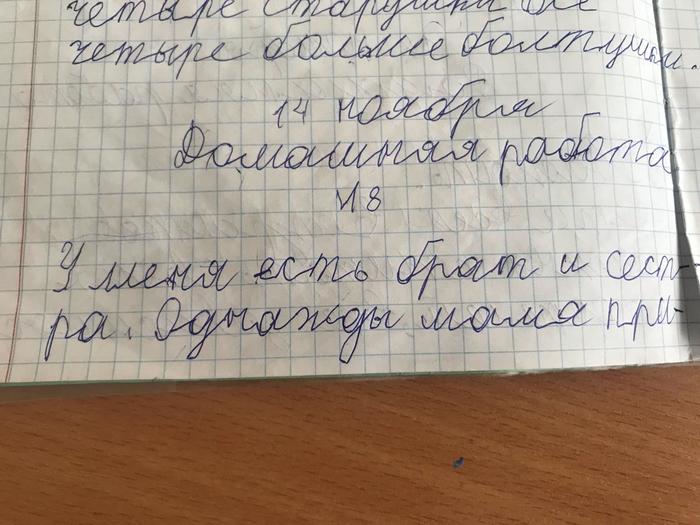 четыре старушки все
четыре больше болтушки.
14 ноября
Домашняя работа
№ 8
У меня есть брат и сест-
ра. Однажды мама при-